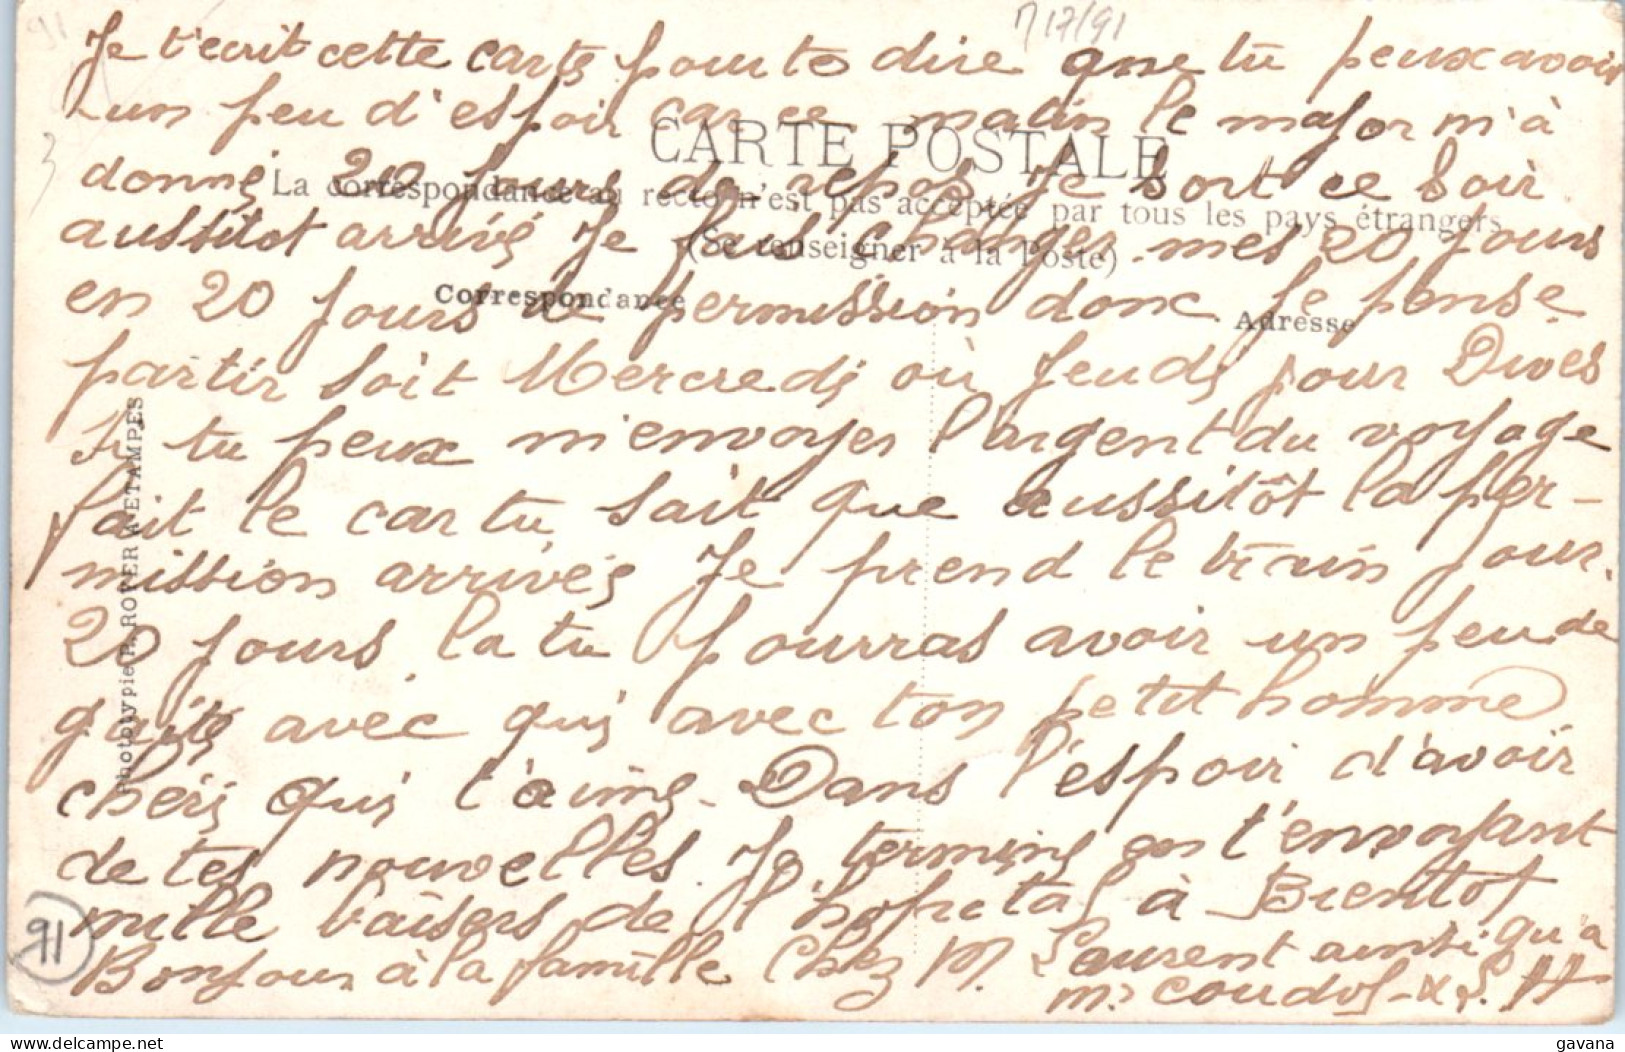 717/91
91
3
Je t'ecrit cette carte pour te dire que tu peux avoir
un peu d'espoir car ce matin le major m'à
CARTE POSTALE
donné 20 jours de repos Je sort ce soir
La correspondance au recto n'est pas acceptée par tous les pays étrangers
(Se renseigner à la Poste)
aussitot arrivé Je fais changer mes 20 jours
Correspondance
Adresse
en 20 jours de permission donc Je pense
partir soit Mercredi où Jeudi pour Dives
Si tu peux m'envoyer l'argent du voyage
fait le car tu sait que aussitôt la per-
mission arrivés Je prend le train pour
20 jours la tu pourras avoir un peu de
gaité avec qui avec ton petit homme
chéri qui t'aime. Dans l'espoir d'avoir
de tes nouvelles Je termine en t'envoyant
mille baisers de l'hopital à Bientot
Bonjour à la famille Chez M. Laurent ainsi qu'a
M. Coudol
Phototypie P. ROYER A ETAMPES
91
delcampe.net
gavana